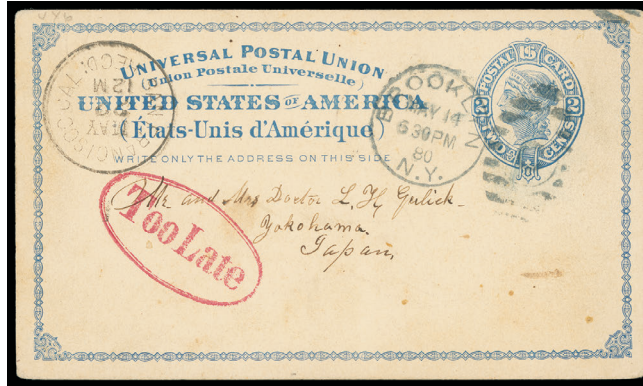 UNIVERSAL POSTAL UNION
(Union Postale Universelle)
UNITED STATES OF AMERICA
(États-Unis d'Amérique)
WRITE ONLY THE ADDRESS ON THIS SIDE
REC'D.
12M
MAY
BROOKLYN
MAY 14
630PM
80
N.Y.
U.S. POSTAL CARD
2 TWO CENTS 2
Too Late
and Mrs Doctor L. H. Gulick.
Yokohama.
Japan.